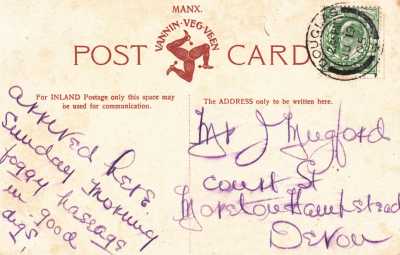 MANX.
VANNIN·VEG·VEEN
POST CARD
DOUGLAS
For INLAND Postage only this space may
be used for communication.
The ADDRESS only to be written here.
arrived here
Sunday morning
foggy passage
in good
digs,
Mr J Mugford
court st
Moreton Hampstead
Devon